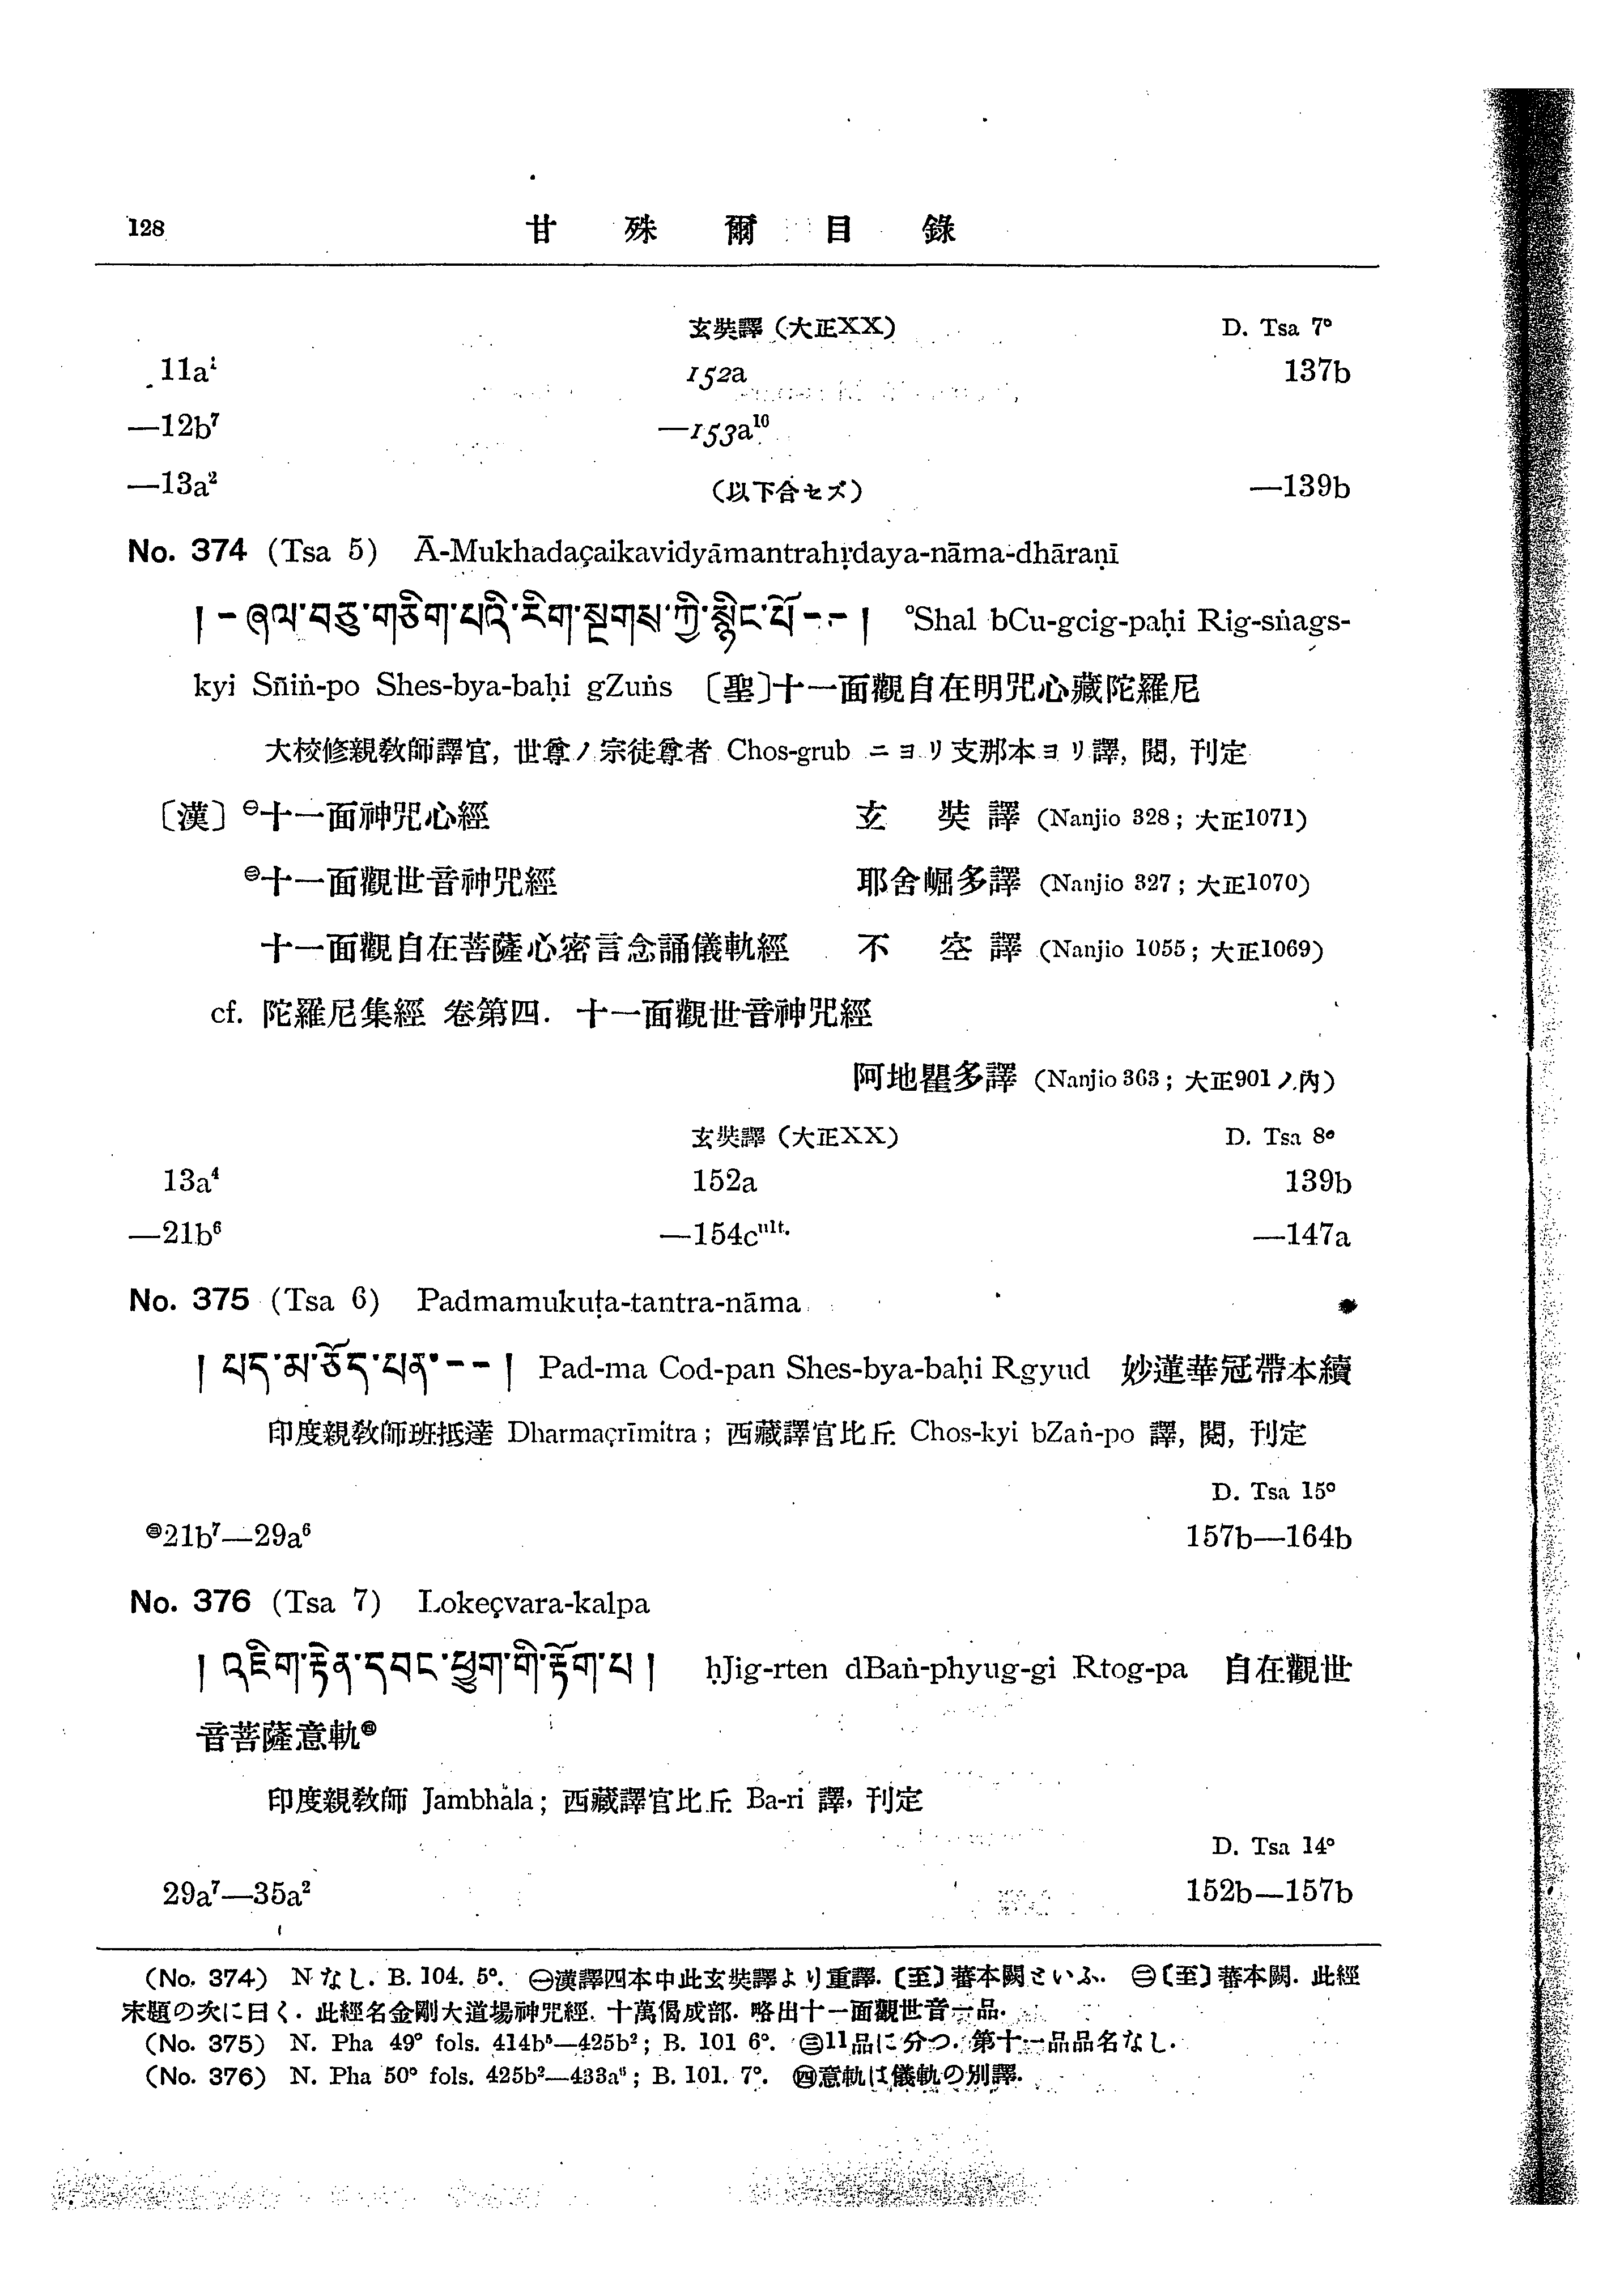 128 甘殊爾目錄
玄奘譯（大正XX） D. Tsa 7°
11a¹ 152a 137b
—12b⁷ —153a¹⁰
—13a² （以下合セズ） —139b
No. 374 (Tsa 5) Ā-Mukhadaçaikavidyāmantrahṛdaya-nāma-dhāraṇī
། – ཞལ་བཅུ་གཅིག་པའི་རིག་སྔགས་ཀྱི་སྙིང་པོ – – ། °Shal bCu-gcig-paḥi Rig-sṅags-
kyi Sñiṅ-po Shes-bya-baḥi gZuṅs 〔聖〕十一面觀自在明咒心藏陀羅尼
大校修親教師譯官, 世尊ノ宗徒尊者 Chos-grub ニヨリ支那本ヨリ譯, 閱, 刊定
〔漢〕㊀十一面神咒心經 玄奘譯 (Nanjio 328; 大正1071)
㊁十一面觀世音神咒經 耶舍崛多譯 (Nanjio 327; 大正1070)
十一面觀自在菩薩心密言念誦儀軌經 不空譯 (Nanjio 1055; 大正1069)
cf. 陀羅尼集經 卷第四. 十一面觀世音神咒經
阿地瞿多譯 (Nanjio 363; 大正901ノ內)
玄奘譯（大正XX） D. Tsa 8°
13a⁴ 152a 139b
—21b⁶ —154cᵘˡᵗ· —147a
No. 375 (Tsa 6) Padmamukuṭa-tantra-nāma
། པད་མ་ཅོད་པན་ – – ། Pad-ma Cod-pan Shes-bya-baḥi Rgyud 妙蓮華冠帶本續
印度親教師班抵達 Dharmaçrīmitra; 西藏譯官比丘 Chos-kyi bZaṅ-po 譯, 閱, 刊定
D. Tsa 15°
㊂21b⁷—29a⁶ 157b—164b
No. 376 (Tsa 7) Lokeçvara-kalpa
། འཇིག་རྟེན་དབང་ཕྱུག་གི་རྟོག་པ ། ḥJig-rten dBaṅ-phyug-gi Rtog-pa 自在觀世
音菩薩意軌㊃
印度親教師 Jambhāla; 西藏譯官比丘 Ba-ri 譯, 刊定
D. Tsa 14°
29a⁷—35a² 152b—157b
(No. 374) N なし. B. 104. 5°. ㊀漢譯四本中此玄奘譯より重譯.〔至〕蕃本闕さいふ. ㊁〔至〕蕃本闕. 此經
末題の次に曰く. 此經名金剛大道場神咒經. 十萬偈成部. 略出十一面觀世音一品.
(No. 375) N. Pha 49° fols. 414b⁵—425b²; B. 101 6°. ㊂11品に分つ. 第十一品品名なし.
(No. 376) N. Pha 50° fols. 425b²—433a⁶; B. 101. 7°. ㊃意軌は儀軌の別譯.